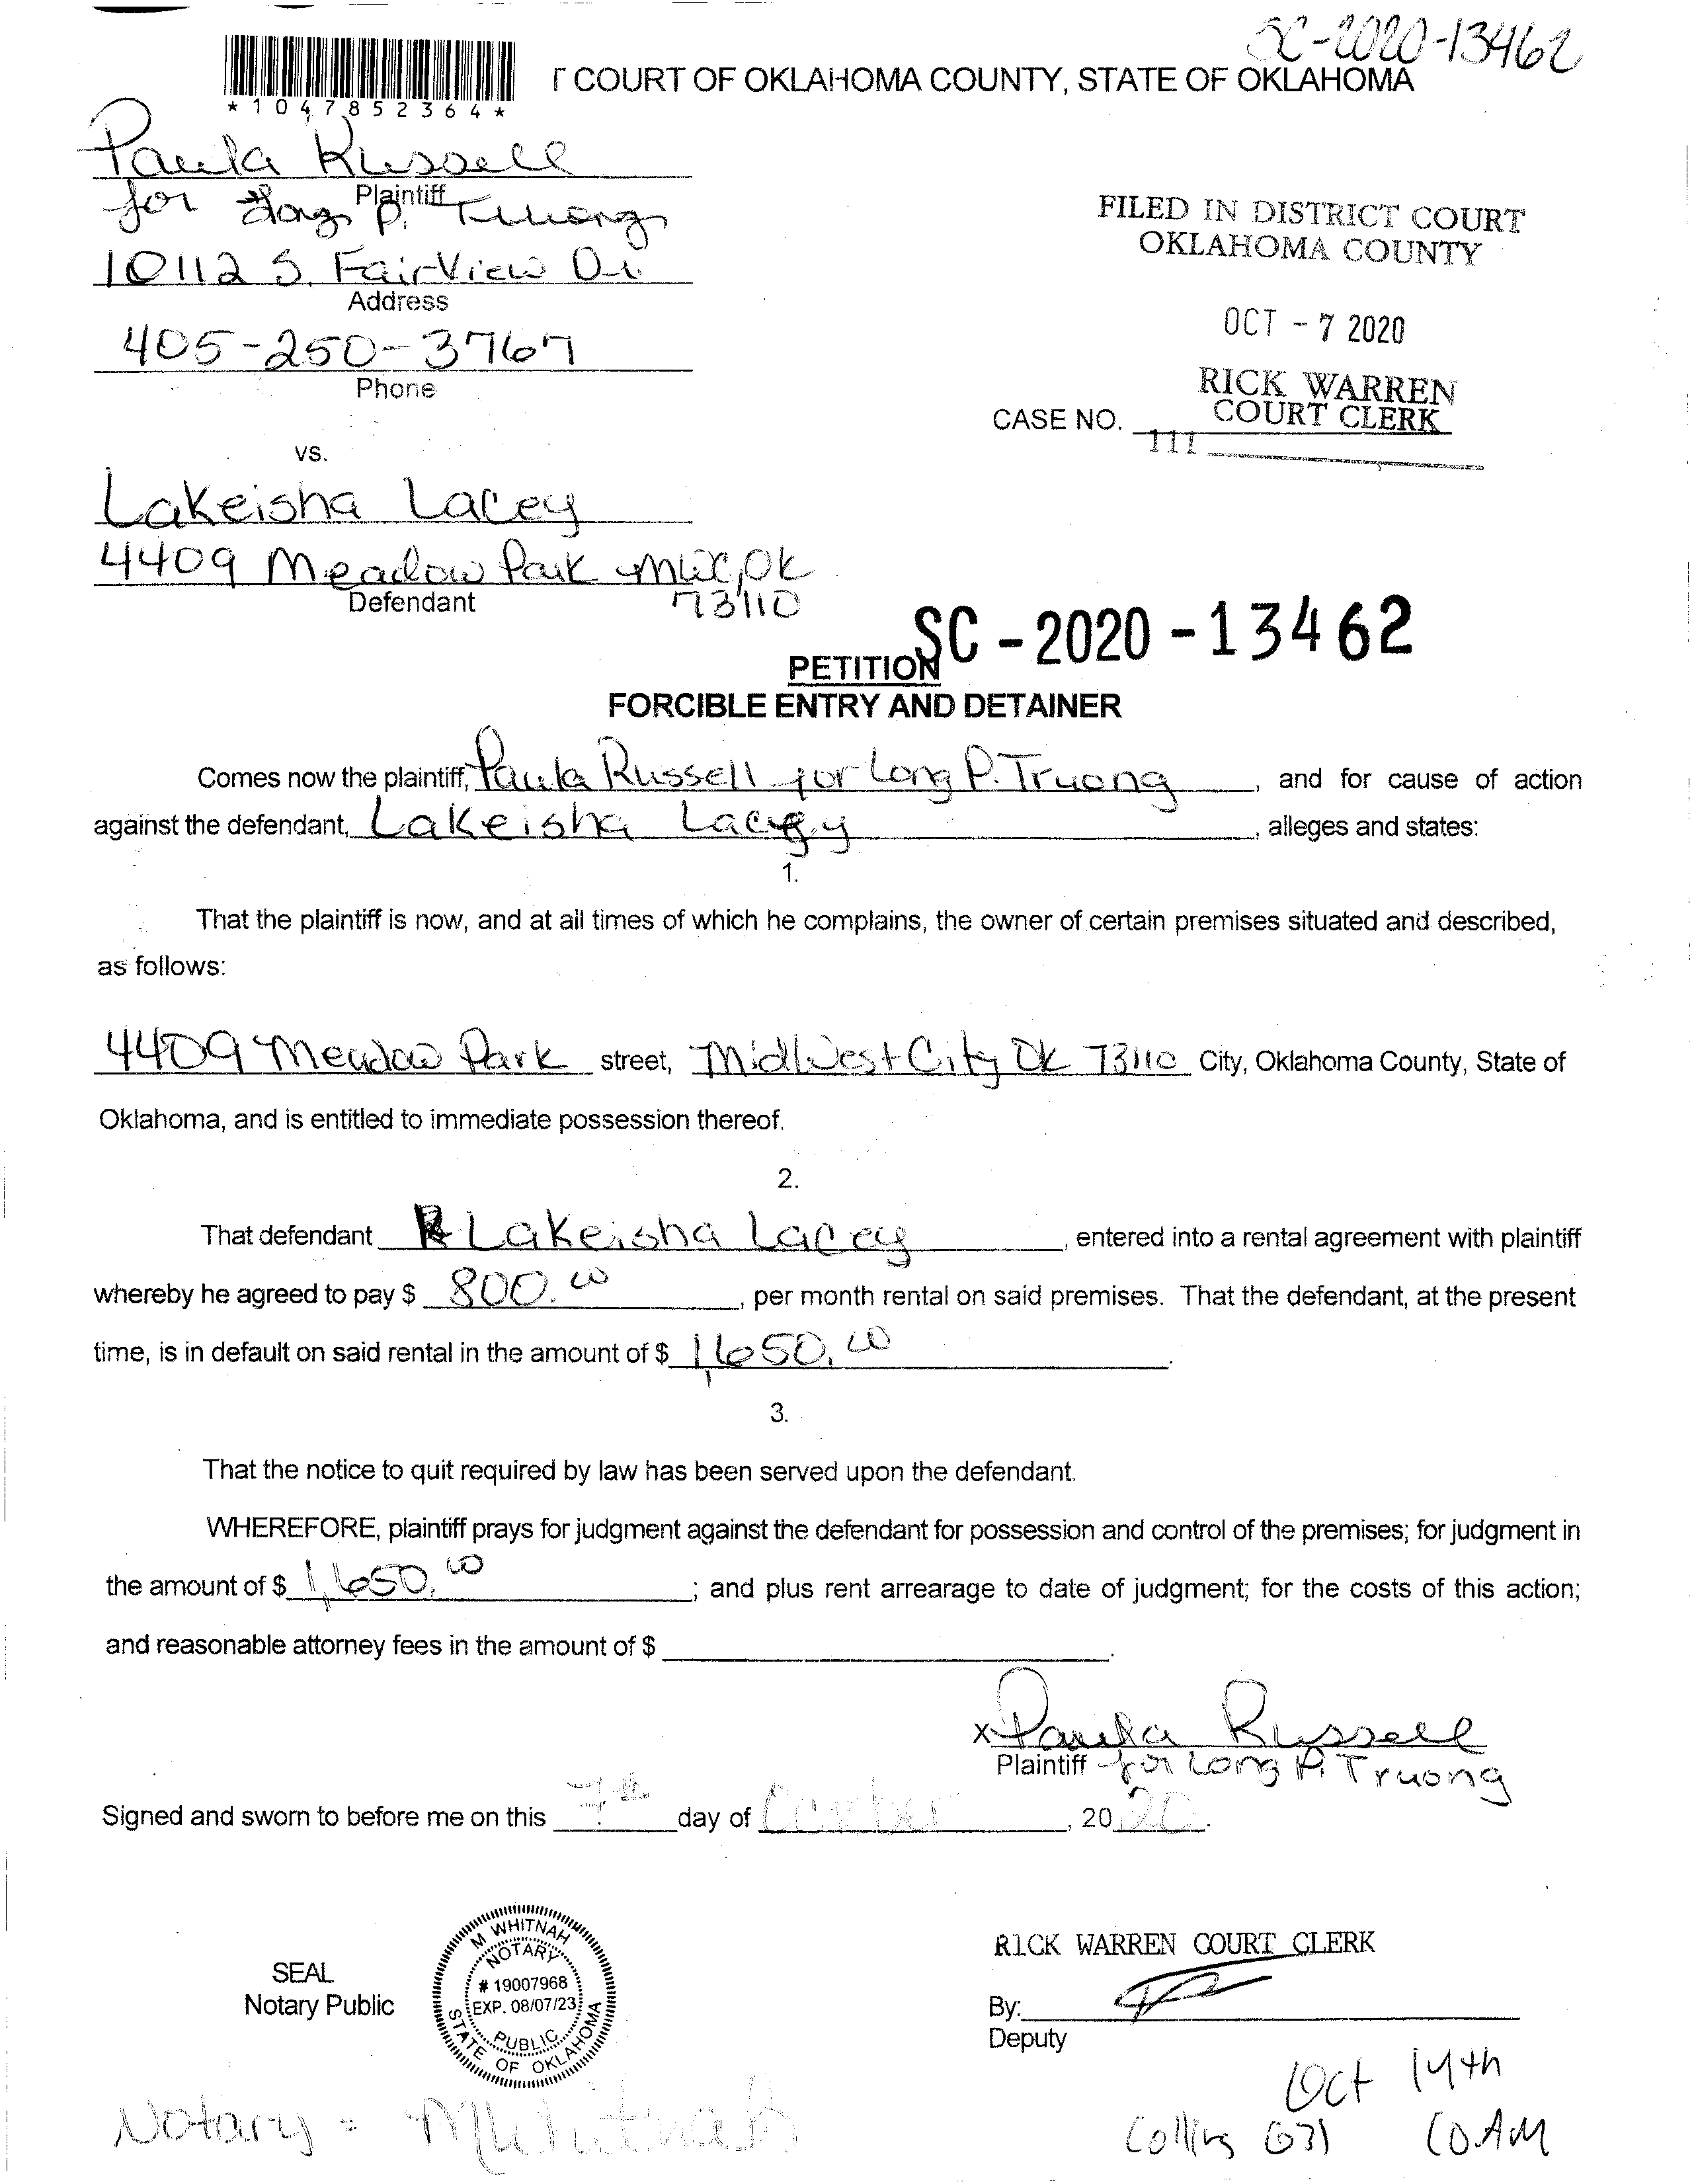 SC-2020-13462
T COURT OF OKLAHOMA COUNTY, STATE OF OKLAHOMA
*1047852364*
Paula Russell
Plaintiff
for Long P. Truong
10112 S. FairView Dr.
Address
405-250-3767
Phone
FILED IN DISTRICT COURT
OKLAHOMA COUNTY
OCT - 7 2020
RICK WARREN
COURT CLERK
CASE NO.
111
vs.
Lakeisha Lacey
4409 Meadow Park MWC, OK
Defendant 73110
SC - 2020 - 13462
PETITION
FORCIBLE ENTRY AND DETAINER
Comes now the plaintiff, Paula Russell for Long P. Truong, and for cause of action
against the defendant, Lakeisha Lacey, alleges and states:
1.
That the plaintiff is now, and at all times of which he complains, the owner of certain premises situated and described,
as follows:
4409 Meadow Park street, MidWest City Ok 73110 City, Oklahoma County, State of
Oklahoma, and is entitled to immediate possession thereof.
2.
That defendant Lakeisha Lacey, entered into a rental agreement with plaintiff
whereby he agreed to pay $ 800.00, per month rental on said premises. That the defendant, at the present
time, is in default on said rental in the amount of $ 1,650.00.
3.
That the notice to quit required by law has been served upon the defendant.
WHEREFORE, plaintiff prays for judgment against the defendant for possession and control of the premises; for judgment in
the amount of $ 1,650.00; and plus rent arrearage to date of judgment; for the costs of this action;
and reasonable attorney fees in the amount of $ .
x Paula Russell
Plaintiff for Long P. Truong
Signed and sworn to before me on this 7th day of , 2020.
SEAL
Notary Public
M WHITNAH
NOTARY
# 19007968
EXP. 08/07/23
PUBLIC
STATE OF OKLAHOMA
RICK WARREN COURT CLERK
By:
Deputy
Notary = M Whitnah
Oct 14th
Collins 631 10 AM